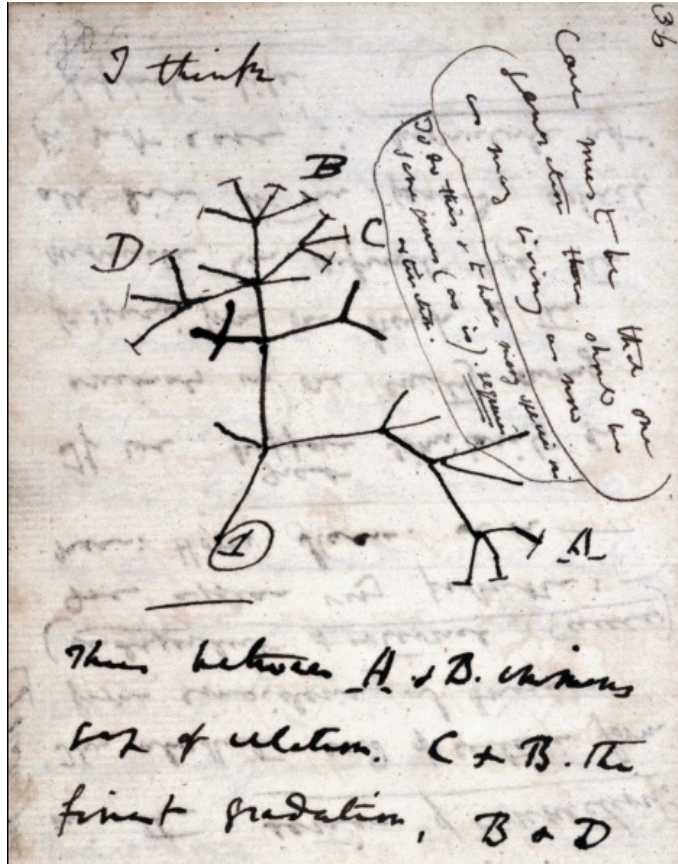 36
I think
Case must be that one
generation then should be
as many living as now
To do this & to have many species in
same genus (as is) requires
extinction.
B
C
D
A
1
Thus between A & B. immens
gap of relation. C & B. The
finest gradation, B & D